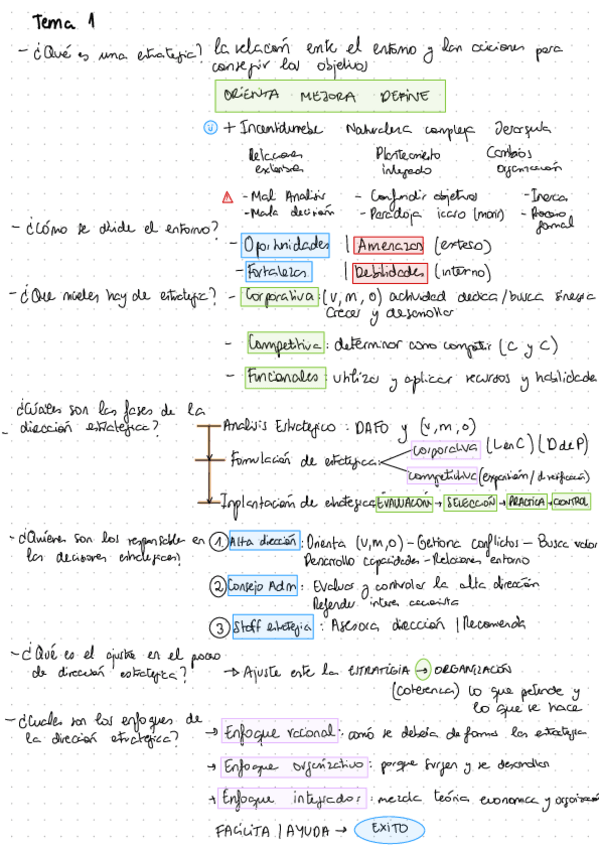 Tema 1
- ¿Qué es una estrategia? la relación ente el entorno y las acciones para
conseguir los objetivos
ORIENTA MEJORA DEFINE
+ Incertidumbre Naturaleza compleja Jerarquía
Relaciones Planteamiento Cambios
externas integrado organización
- Mal Analisis - Confundir objetivos - Inercia
- Mala decisión - Paradoja icaro (morir) - Proceso
formal
- ¿Cómo se divide el entorno?
- Oportunidades | Amenazas (exteso)
- Fortalezas | Debilidades (interno)
- ¿Que niveles hay de estrategia? - Corporativa: (v, m, o) actividad dedica/busca sinergia
Crecer y desarrollar
- Competitiva: determinar como competir (C y C)
- Funcionales: utilizar y aplicar recursos y habilidade
- ¿Cuales son las fases de la
dirección estrategica?
Analisis Estrategico: DAFO y (v, m, o)
Formulación de estrategica corporativa (L en C) (D de P)
competitiva (expansión/diversificación)
Implantación de estrategica EVALUACIÓN → SELECCIÓN → PRACTICA → CONTROL
- ¿Quienes son los responsables en
las decisiones estrategicas?
1 Alta dirección: Orienta (v, m, o) - Gestiona conflictos - Busca valor
Desarrollo capacidades - Relaciones entorno
2 Consejo Adm: Evaluar y controlar la alta dirección
Defender interes accionista
3 Staff estrategia: Asesora dirección | Recomienda
- ¿Qué es el ajuste en el
de dirección estrategica?
→ Ajuste ente la ESTRATEGIA → ORGANIZACIÓN
(coherencia) lo que pretende y
lo que se hace
- ¿Cuales son los enfoques de
la dirección estrategica?
→ Enfoque racional: como se debería de formar las estrategia
→ Enfoque organizativo: porque surgen y se desarrollan
→ Enfoque integrador: mezcla teória economica y
FACILITA | AYUDA → EXITO